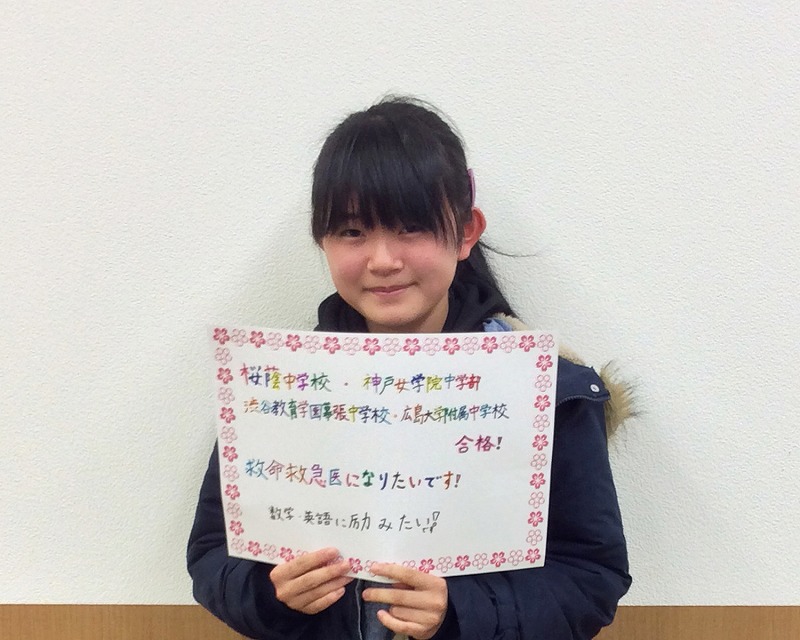 桜蔭中学校・神戸女学院中学部
渋谷教育学園幕張中学校・広島大学附属中学校
合格!
救命救急医になりたいです!
数学・英語に励みたいです!